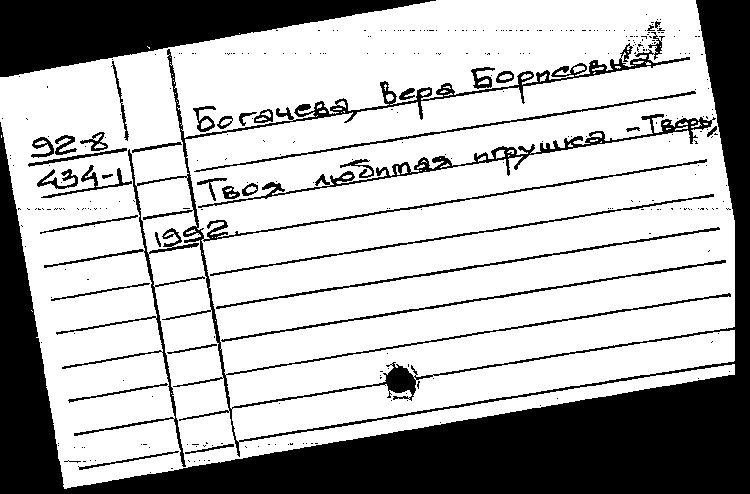 Богачева, Вера Борисовна
92-8
434-1
Твоя любимая игрушка. - Тверь,
1992.